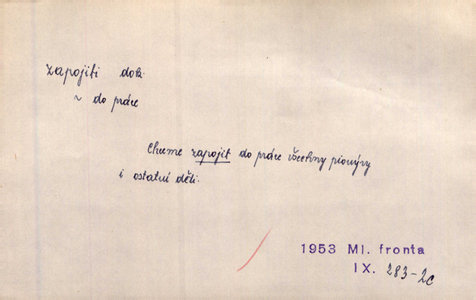 zapojiti dok.
~ do práce
Chceme zapojit do práce všechny pionýry
i ostatní děti.
1953 Ml. fronta
IX. 283-2c